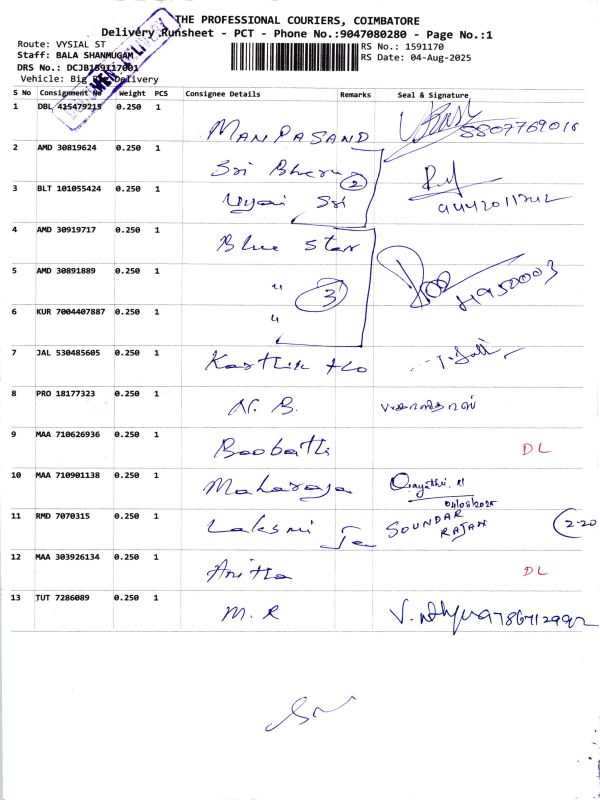 THE PROFESSIONAL COURIERS, COIMBATORE
Delivery Runsheet - PCT - Phone No.:9047080280 - Page No.:1
Route: VYSIAL ST
RS No.: 1591170
Staff: BALA SHANMUGAM
RS Date: 04-Aug-2025
DRS No.: DCJB159117001
Vehicle: Big Delivery
S No Consignment No Weight PCS Consignee Details Remarks Seal & Signature
1 DBL 415479215 0.250 1 MANPASAND 8807769016
2 AMD 30819624 0.250 1 Sri
3 BLT 101055424 0.250 1 Sri 2 9442011742
4 AMD 30919717 0.250 1 Blue Star
5 AMD 30891889 0.250 1 " 3 4950003
6 KUR 7004407887 0.250 1 "
7 JAL 530485605 0.250 1 Karthik
8 PRO 18177323 0.250 1 N. B.
9 MAA 710626936 0.250 1 Boobathi DL
10 MAA 710901138 0.250 1 Maharaja Gayathri. M
04/08/2025
11 RMD 7070315 0.250 1 Laksmi SOUNDAR
RAJAN 2-20
12 MAA 303926134 0.250 1 Anitha DL
13 TUT 7286089 0.250 1 M. R 9786712992